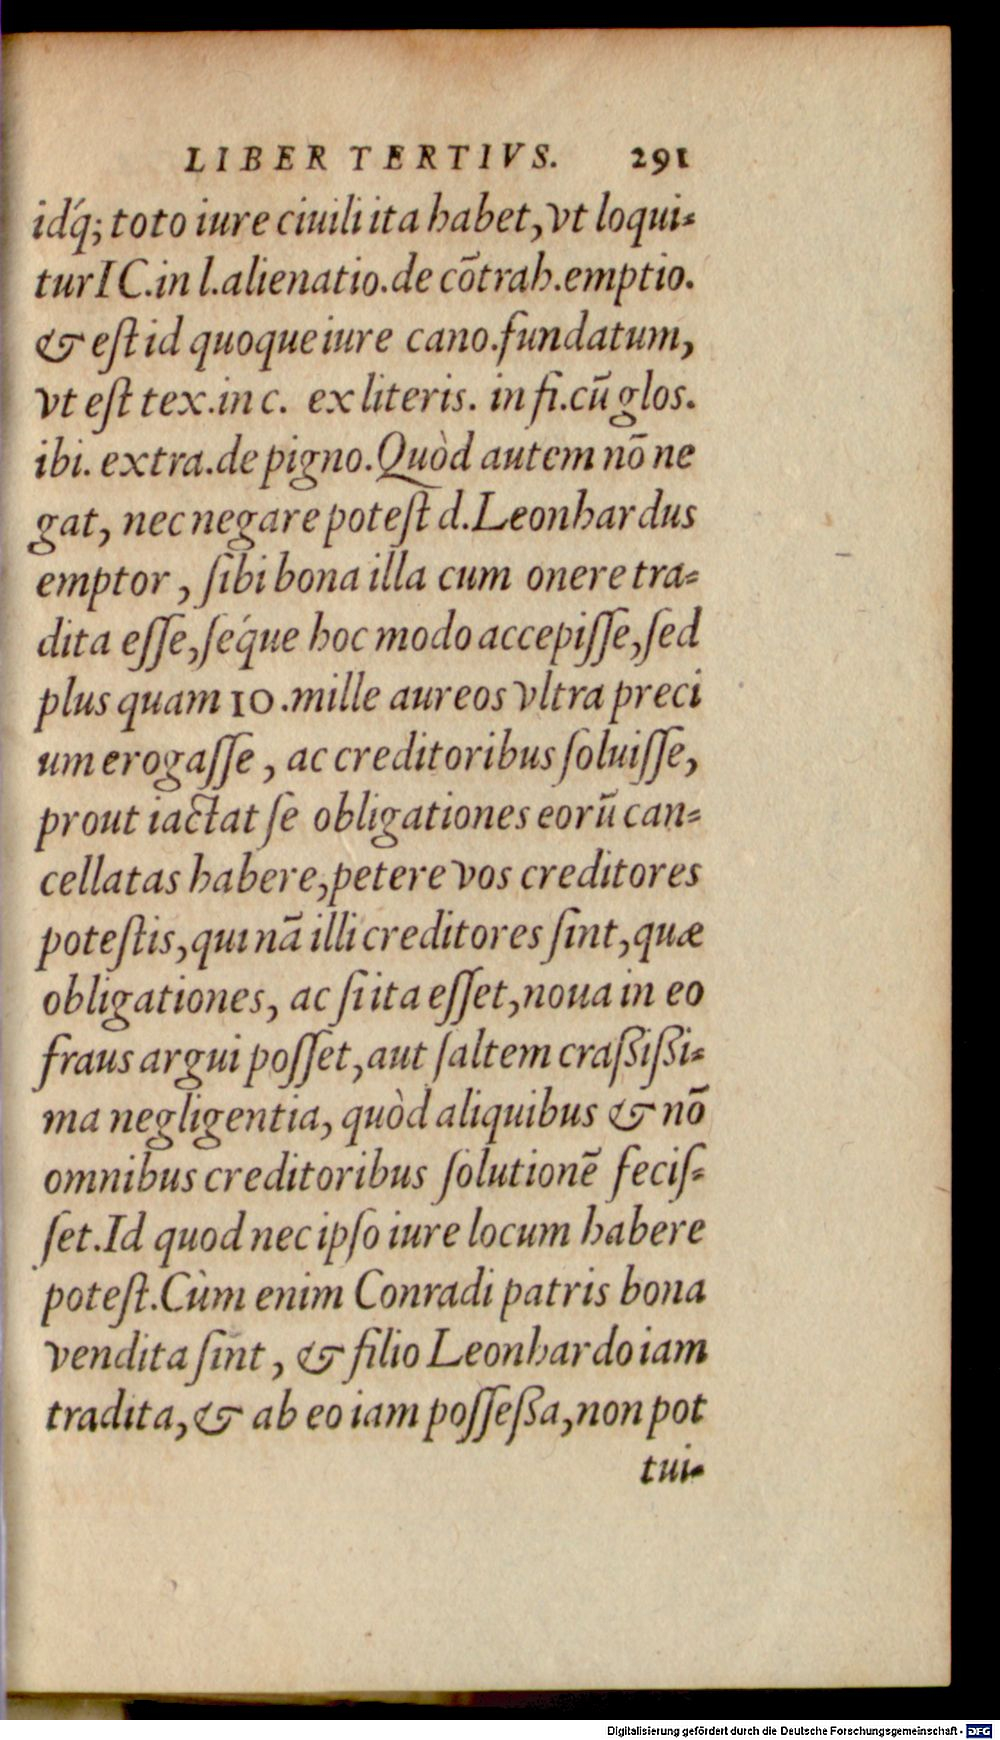 LIBER TERTIVS. 291
idq́; toto iure ciuili ita habet, vt loqui-
tur IC. in l. alienatio. de cõtrah. emptio.
& eſt id quoque iure cano. fundatum,
vt eſt tex. in c. ex literis. in fi. cũ glos.
ibi. extra. de pigno. Quòd autem nõ ne
gat, nec negare poteſt d. Leonhardus
emptor, ſibi bona illa cum onere tra-
dita eſſe, ſéque hoc modo accepiſſe, ſed
plus quam 10. mille aureos vltra preci
um erogaſſe, ac creditoribus ſoluiſſe,
prout iactat ſe obligationes eorũ can-
cellatas habere, petere vos creditores
poteſtis, qui nã illi creditores ſint, quæ
obligationes, ac ſi ita eſſet, noua in eo
fraus argui poſſet, aut ſaltem craßißi-
ma negligentia, quòd aliquibus & nõ
omnibus creditoribus ſolutionẽ feciſ-
ſet. Id quod nec ipſo iure locum habere
poteſt. Cùm enim Conradi patris bona
vendita ſint, & filio Leonhardo iam
tradita, & ab eo iam poſſeßa, non pot
tui-
Digitalisierung gefördert durch die Deutsche Forschungsgemeinschaft - DFG